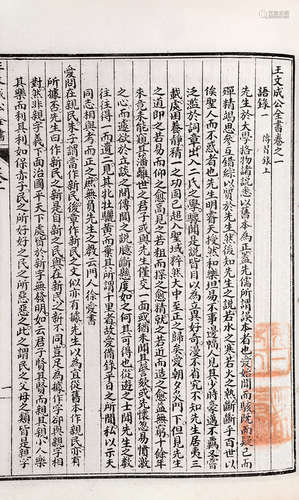 王文成公全書卷之一
語錄一 傳習錄上
先生於大學格物諸說悉以舊本為正蓋先儒所謂誤本者也愛始聞而駭既而疑已而
殫精竭思參互錯綜以質於先生然後知先生之說若水之寒若火之熱斷斷乎百世以
俟聖人而不惑者也先生明睿天授然和樂坦易不事邊幅人見其少時豪邁不羈又嘗
泛濫於詞章出入二氏之學驟聞是說皆目以為立異好奇漫不省究不知先生居夷三
載處困養靜精一之功固已超入聖域粹然大中至正之歸矣愛朝夕炙門下但見先生
之道即之若易而仰之愈高見之若粗而探之愈精就之若近而造之愈益無窮十餘年
來竟未能窺其藩籬世之君子或與先生僅交一面或猶未聞其謦欬或先懷忽易憤激
之心而遽欲於立談之間傳聞之說臆斷懸度如之何其可得也從遊之士聞先生之教
往往得一而遺二見其牝牡驪黃而棄其所謂千里者故愛備錄平日之所聞私以示夫
同志相與考而正之庶無負先生之教云門人徐愛書
愛問在親民朱子謂當作新民後章作新民之文似亦有據先生以為宜從舊本作親民亦有
所據否先生曰作新民之新是自新之民與在新民之新不同此豈足為據作字卻與親字相
對然非親字義下面治國平天下處皆於新字無發明如云君子賢其賢而親其親小人樂
其樂而利其利如保赤子民之所好好之民之所惡惡之此之謂民之父母之類皆是親字
王文成公全書